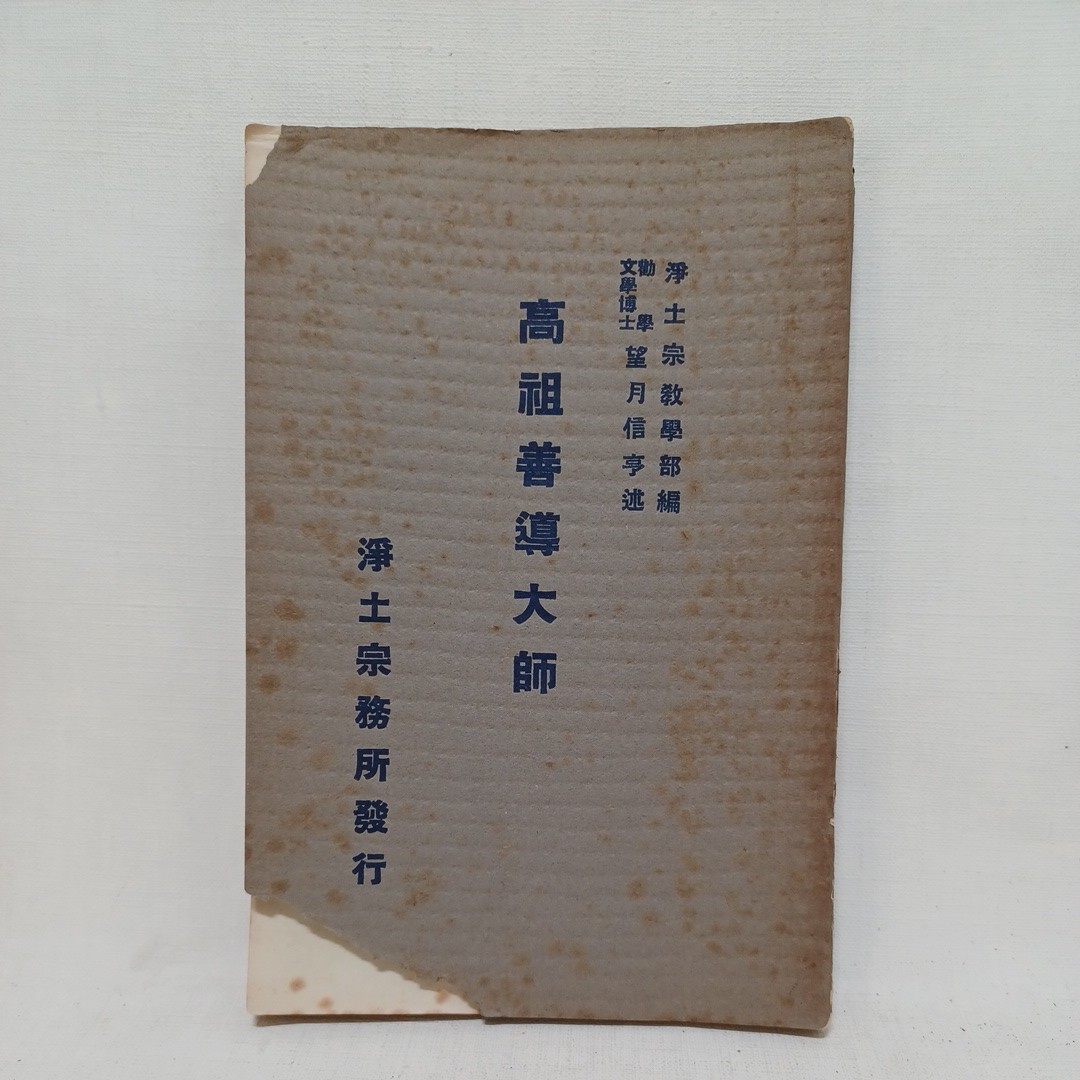 淨土宗教學部編
勸學
文學博士
望月信亨述
高祖善導大師
淨土宗務所發行